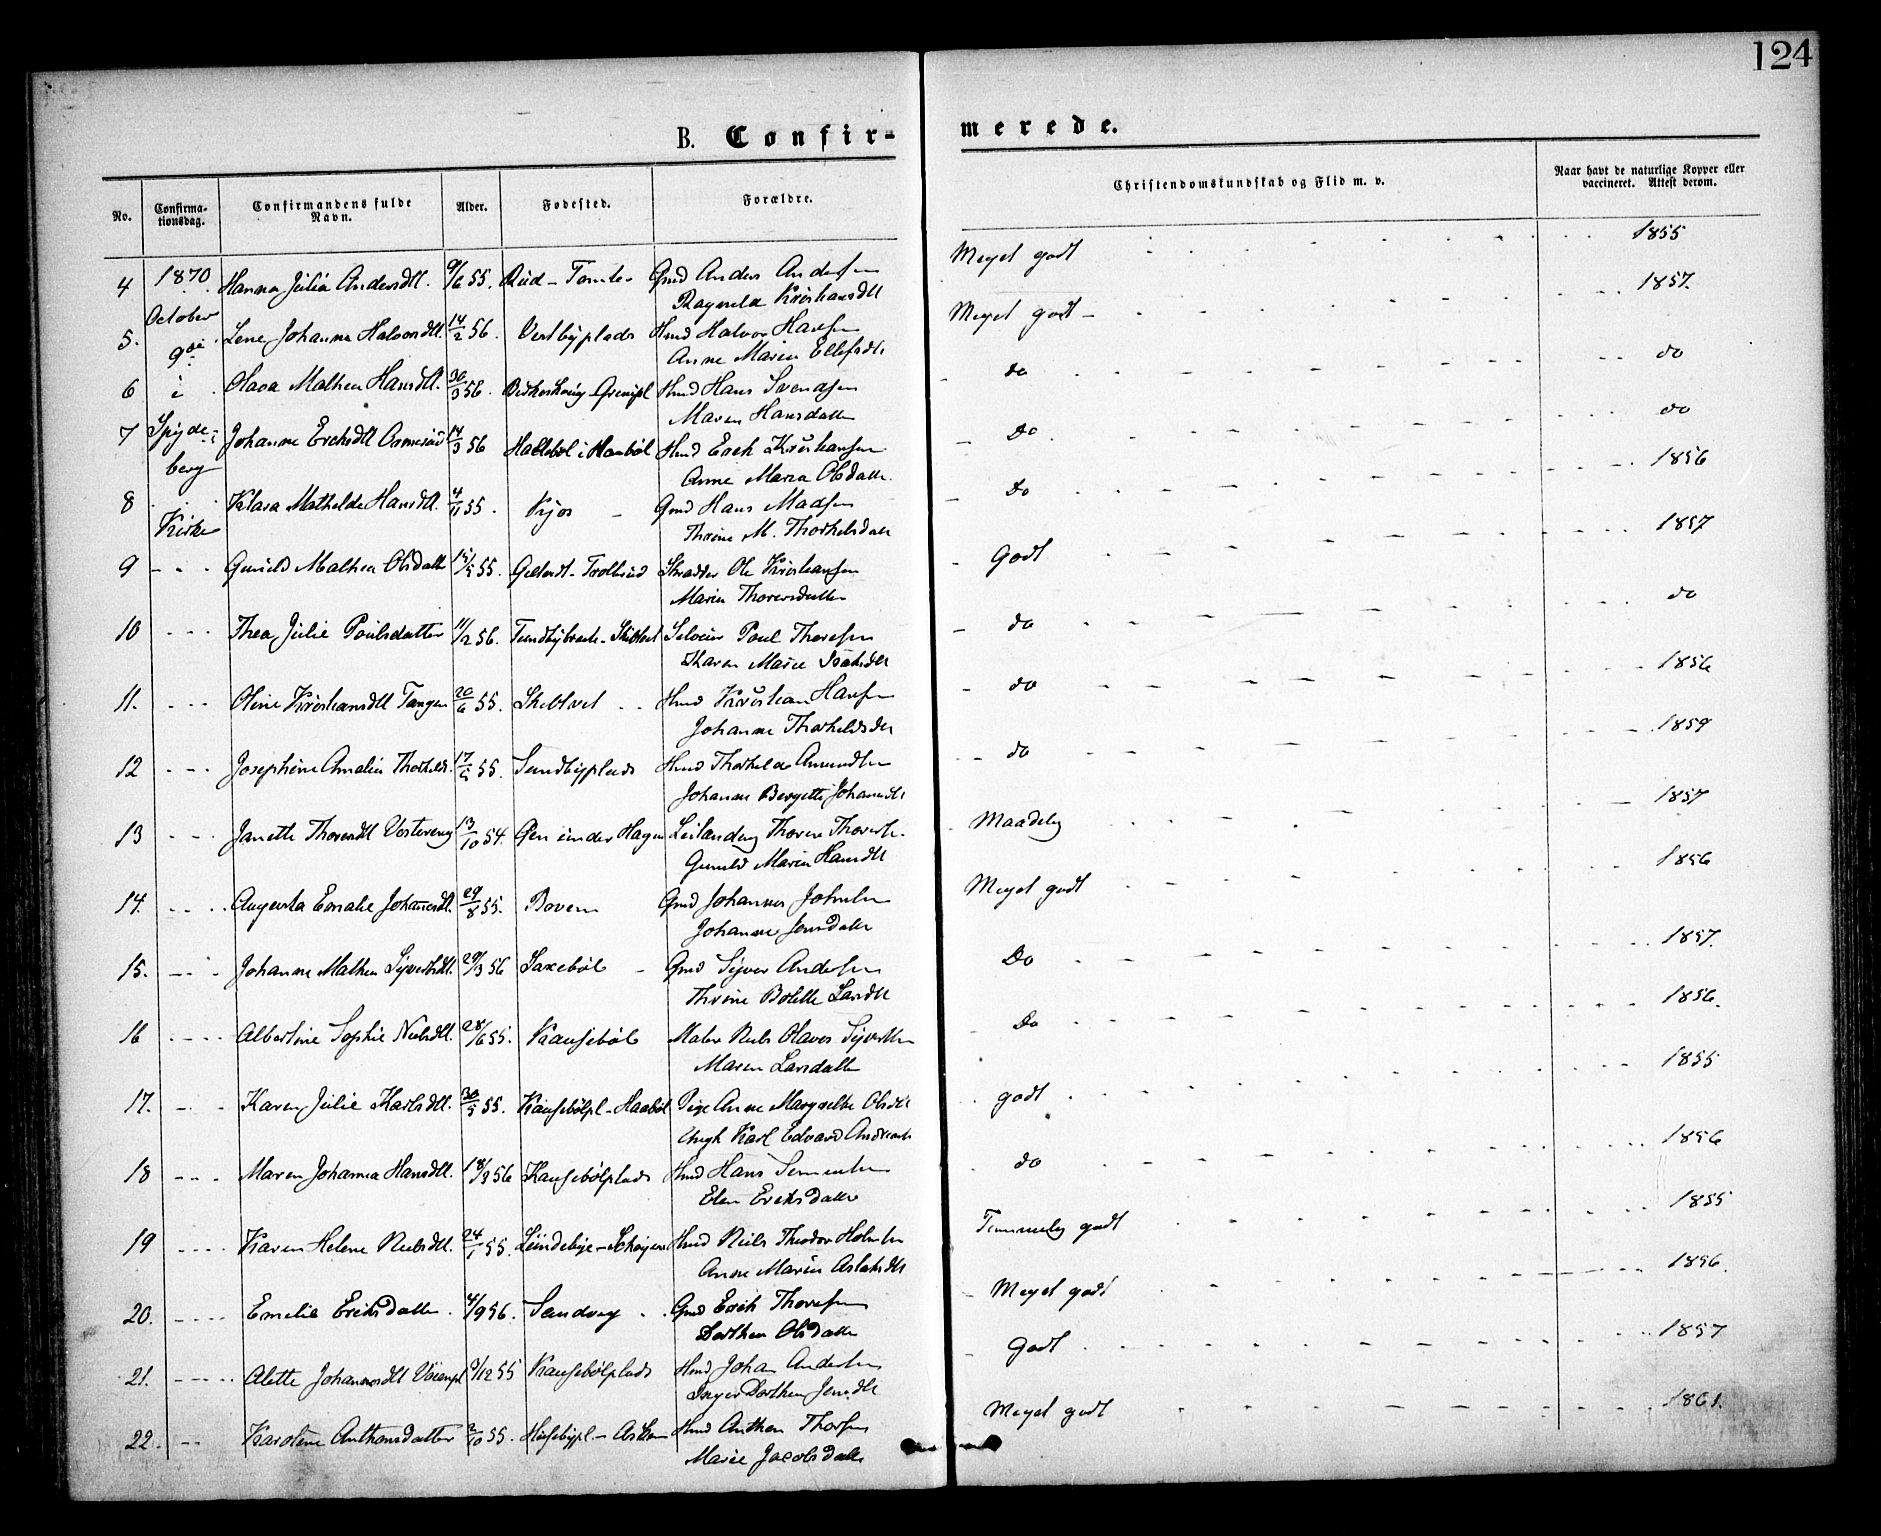 124
B. Confir-
merede.
No.
Confirma-
tionsdag.
Confirmandens fulde
Navn.
Alder.
Fødested.
Forældre.
Christendomskundskab og Flid m. v.
Naar havt de naturlige Kopper eller
vaccineret. Attest derom.
4 1870 Hanna Julia Andersdtt. 9/6 55. Rud - Tomter Gmd Anders Andersen Meget godt 1855
Ragnild Kristiansdtt
October
5. 9de Lene Johanne Halvorsdtt. 14/2 56. Vestbyplads Hmd Halvor Hansen Meget godt 1857.
Anne Maria Ellefsdtr
6 i Olava Mathea Hansdtt. 30/3 56. Hmd Hans Svendsen do do
Maren Hansdatter
7 Spyde- Johanne Erichsdtt 14/3 56 Hallebøl i Haabøl Hmd Erik Kristiansen Do do
berg Anne Maria Olsdatter
8 Klara Mathilde Hansdtt. 4/11 55. Kjos Gmd Hans Madsen Do 1856
Kirke Thrine M. Thorkelsdatter
9 Gunild Mathea Olsdatter 55. Skrædder Ole Kristiansen Godt 1857
Maria Thoresdatter
10 Thea Julie Poulsdatter 11/2 56. Selveier Poul Thoresen do do
Karen Marie Isaksdtt
11. Oline Kristiansdtt Tangen 20/6 55. Skeltvet Hmd Kristian Hansen do 1856
Johanne Thorkeldsdtr
12 Josephine Amalia Thorkelds. 17/5 55. Sundbyplads Hmd Thorkild Amundsen do 1859
Johanne Bergette Johannsdtr
13 Janette Thoresdtt Vestereng 13/10 54. Øen under Hagen Leilænding Thore Thoresen Maadelig 1857
Gunild Maria Hansdtt
14. Augusta Emalie Johannesdtt. 29/8 55. Boven Gmd Johannes Johnsen Meget godt 1856
Johanne Jensdatter
15. Johanne Mathea Syvertsdtt. 29/3 56 Saxebøl Gmd Syver Andersen Do 1857.
Thrine Bolette Larsdtt
16 Albertine Sophie Nielsdtt. 28/6 55. Knusebøl Maler Niels Olaves Syvertsen Do 1856.
Maren Larsdatter
17. Karen Julie Karlsdtt. 30/5 55. Knusebølpl - Haabøl Pige Anne Margrethe Olsdtt godt 1855
Ungk Karl Edvard Andreas
18 Maren Johanna Hansdtt. 18/3 56 Knusebølplads Hmd Hans Simensen do 1856
Elen Eriksdatter
19 Karen Helene Nielsdtt. 24/1 55. Hmd Niels Theodor Holmsen Temmelig godt 1855
Anne Maria Aslaksdtt
20. Emelie Eriksdatter. 4/9 56. Sandvig Gmd Erik Thoresen Meget godt 1856.
Dorthea Olsdatter
21. Alette Johannesdtt 9/12 55 Knusebølplads Hmd Johan Andersen Godt 1857
Inger Dorthea Jensdtt
22. Karoline Anthonsdatter 2/10 55. Husebypl. - Askim Hmd Anthon Thorsen Meget godt 1861.
Marie Jacobsdatter